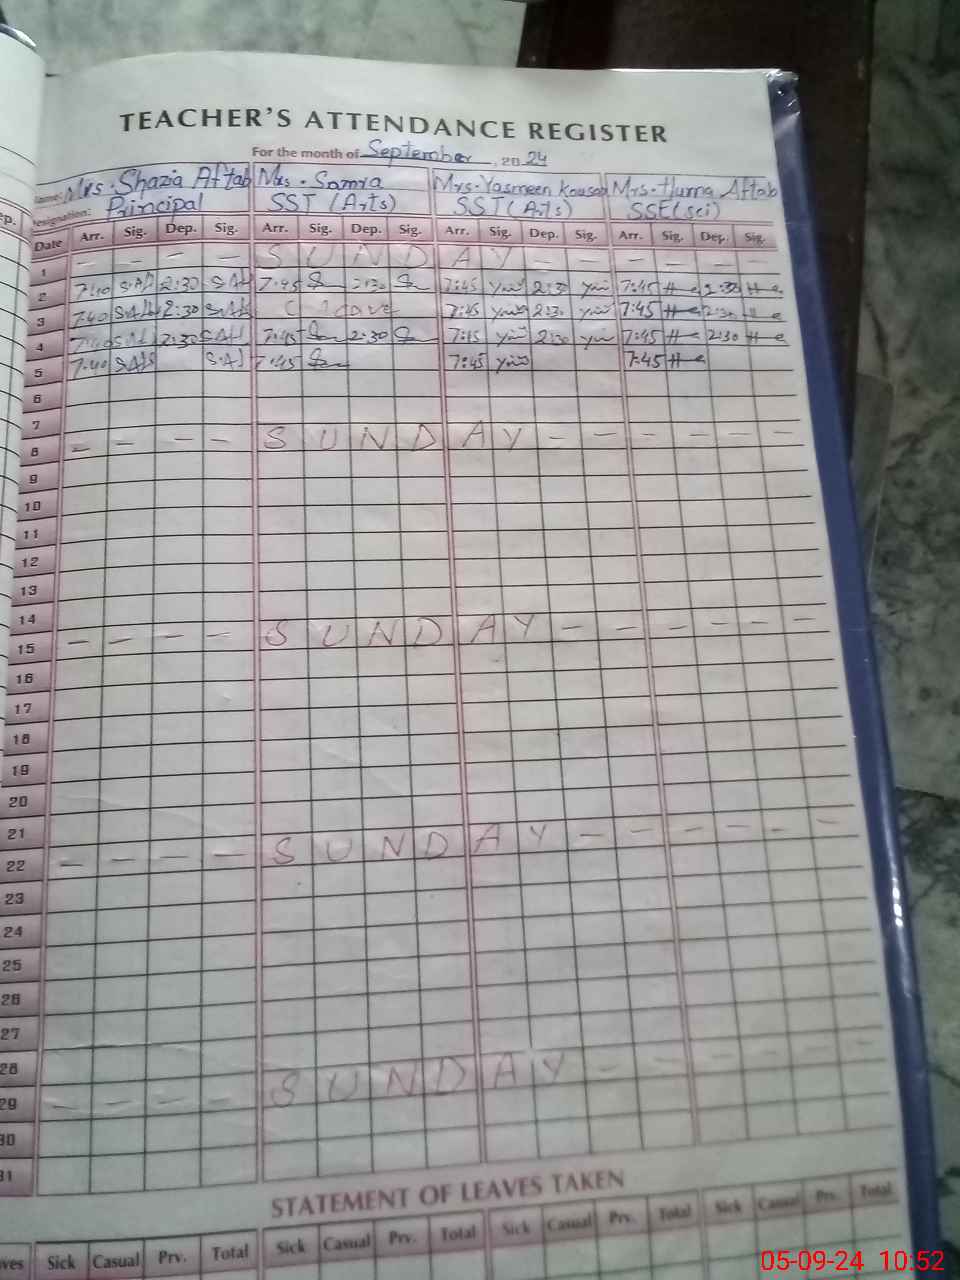 TEACHER'S ATTENDANCE REGISTER
For the month of September, 20 24
Name: Mrs. Shazia Aftab Mrs. Samra Mrs. Yasmeen Kousar Mrs. Huma Aftab
Designation: Principal SST (Arts) SST (Arts) SSE (Sci)
ep. Date Arr. Sig. Dep. Sig. Arr. Sig. Dep. Sig. Arr. Sig. Dep. Sig. Arr. Sig. Dep. Sig.
1 - - - - S U N D A Y - - - - - -
2 7:40 2:30 7:45 2:30 7:45 2:30 7:45 2:30
3 7:40 2:30 C leave 7:45 2:30 7:45 2:30
4 7:40 2:30 7:45 2:30 7:45 2:30 7:45 2:30
5 7:40 7:45 7:45 7:45
6
7
8 - - - - S U N D A Y - - - - - -
9
10
11
12
13
14
15 - - - - S U N D A Y - - - - - -
16
17
18
19
20
21
22 - - - - S U N D A Y - - - - - -
23
24
25
26
27
28
29 - - - - S U N D A Y - - - - - -
30
31
STATEMENT OF LEAVES TAKEN
ves Sick Casual Prv. Total Sick Casual Prv. Total Sick Casual Prv. Total Sick Casual Prv. Total
05-09-24 10:52